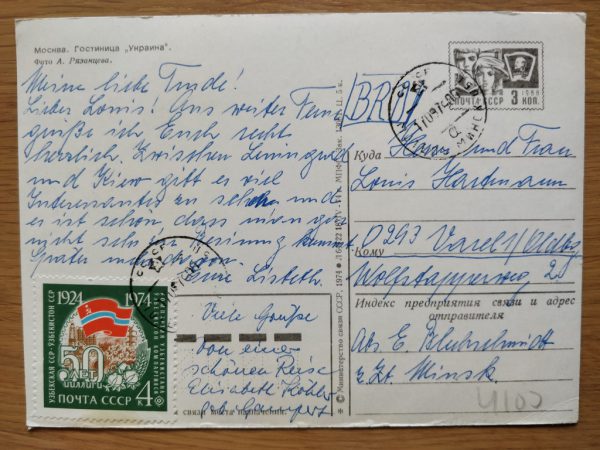 Москва. Гостиница „Украина".
Фото А. Рязанцева.
Meine liebe Trude!
Lieber Louis! Aus weiter Ferne
grüße ich Euch recht
herzlich. Zwischen Leningrad
und Kiew gibt es viel
Interessantes zu sehen und
es ist schön, dass man gar
nicht zur Besinnung kommt.
Später mehr davon.
Eure Lisbeth.
Viele Grüße
von einer
schönen Reise
Elisabeth Köhler
1924 1974
УЗБЕКСКАЯ ССР
50
ЛЕТ
ЙИЛЛИГИ
ПОЧТА СССР 4к
связи места назначения.
© Министерство связи СССР. 1974
BRD!
ПОЧТА СССР 3 КОП.
1968
СССР
МИНСК
Куда
Herrn und Frau
Louis Hartmann
Кому
D 293 Varel 1/Oldbg
Wolfstapperweg 2
Индекс предприятия связи и адрес
отправителя
Abs E.
z. Zt. Minsk.
4105